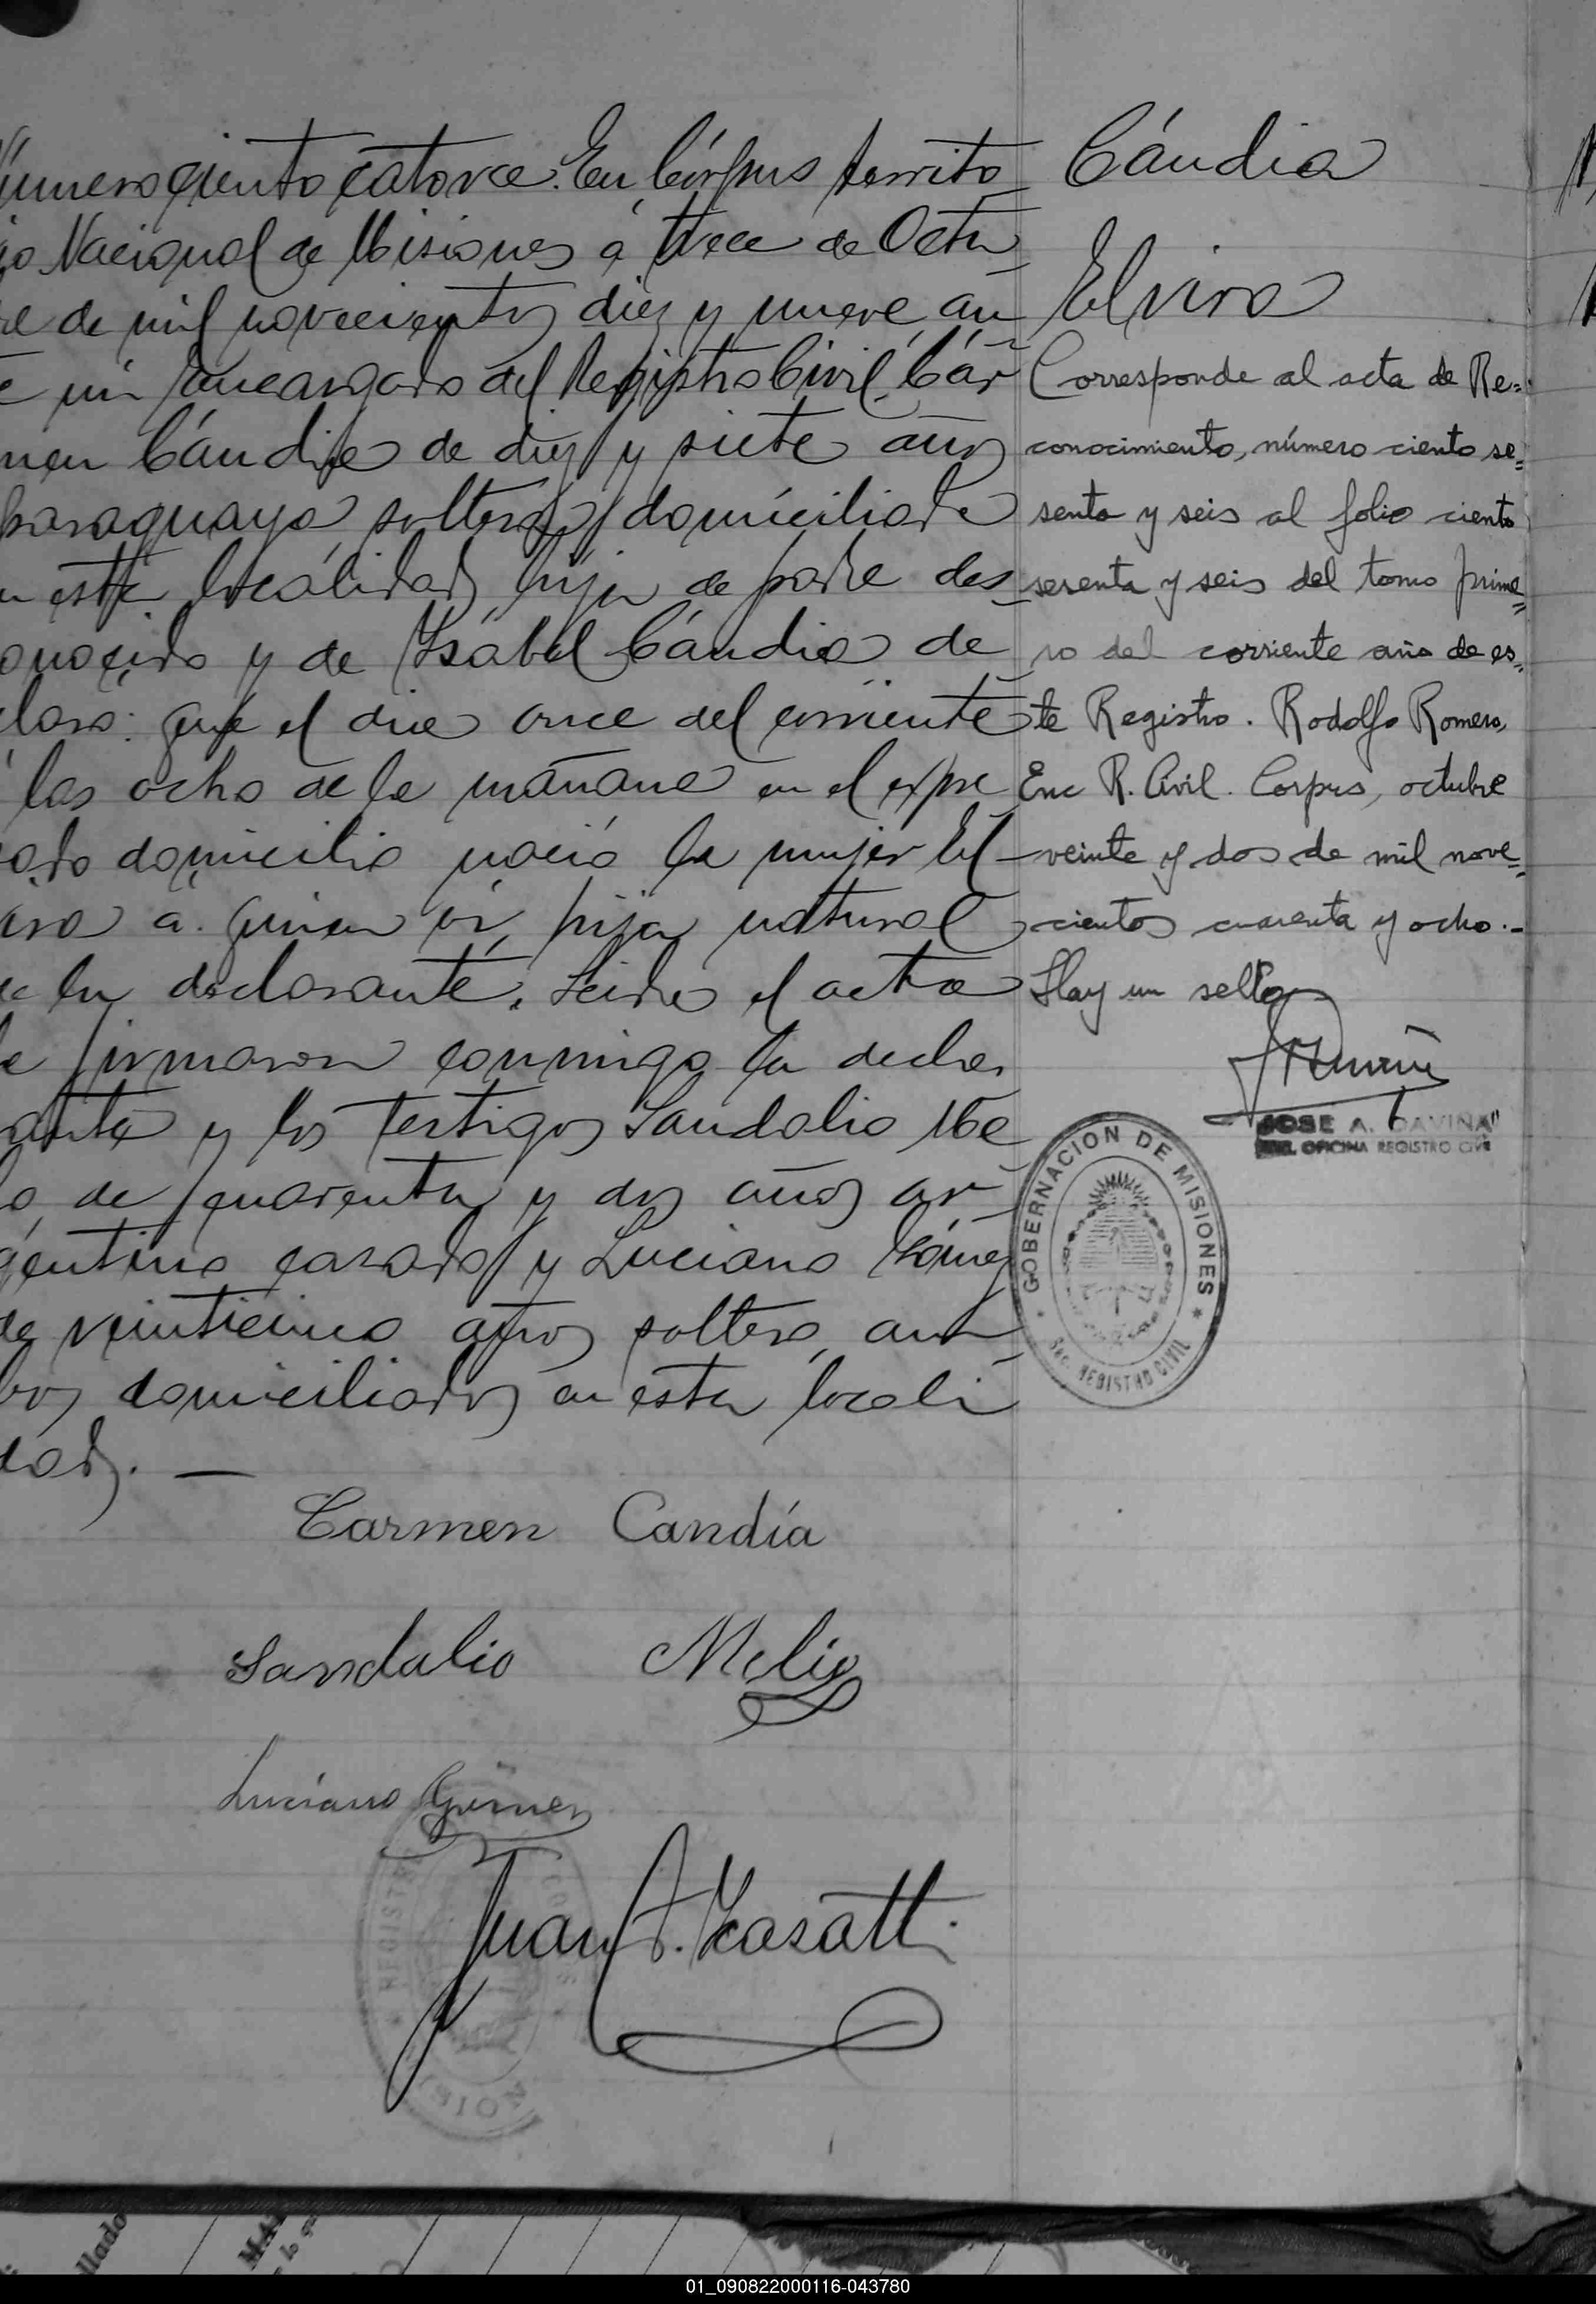 Número ciento catorce. En Córpus territo
rio Nacional de Misiones á trece de Octu
re de mil novecientos diez y nueve, an
e mi Encargado del Registro Civil, Cár
men Cándia de diez y siete años
paraguaya, soltera, domiciliada
n esta localidad, hija de padre des
onocido y de Ysabel Cándia de
clara: que el dia once del corriente
á las ocho de la mañana en el expre
sado domicilio nació la mujer El
vira a quien vi, hija natural
de la declarante. Leida el acta
la firmaron conmigo la decla
rante y los testigos Sandalio Me
lo, de cuarenta y dos años ar
gentino casado y Luciano Gómez
de veinticinco años soltero, am
bos domiciliados en esta locali
dad. —
Carmen Candía
Sandalio Melio
Luciano Gimenez
Juan F. Kasatti.
Cándia
Elvira
Corresponde al acta de Re=
conocimiento, número ciento se=
senta y seis al folio ciento
sesenta y seis del tomo prime=
ro del corriente año de es=
te Registro. Rodolfo Romero,
Enc R. Civil. Corpus, octubre
veinte y dos de mil nove=
cientos cuarenta y ocho.-
Hay un sello
JOSE A. DAVIÑA
OFICINA REGISTRO CIVIL
GOBERNACION DE MISIONES
REGISTRO CIVIL
REGISTR
llado
01_090822000116-043780